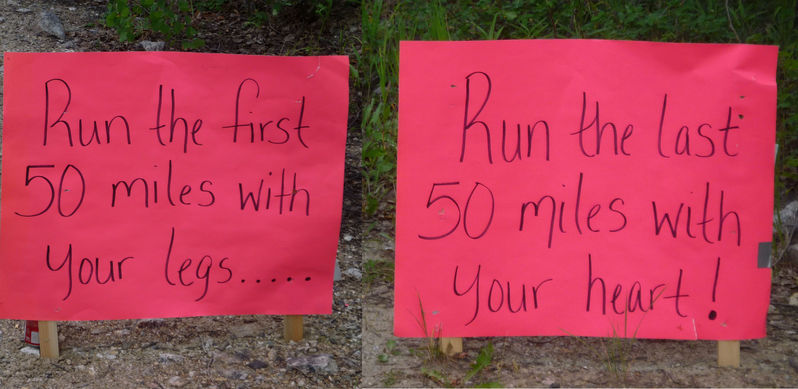 Run the first
50 miles with
your legs.....
Run the last
50 miles with
your heart!